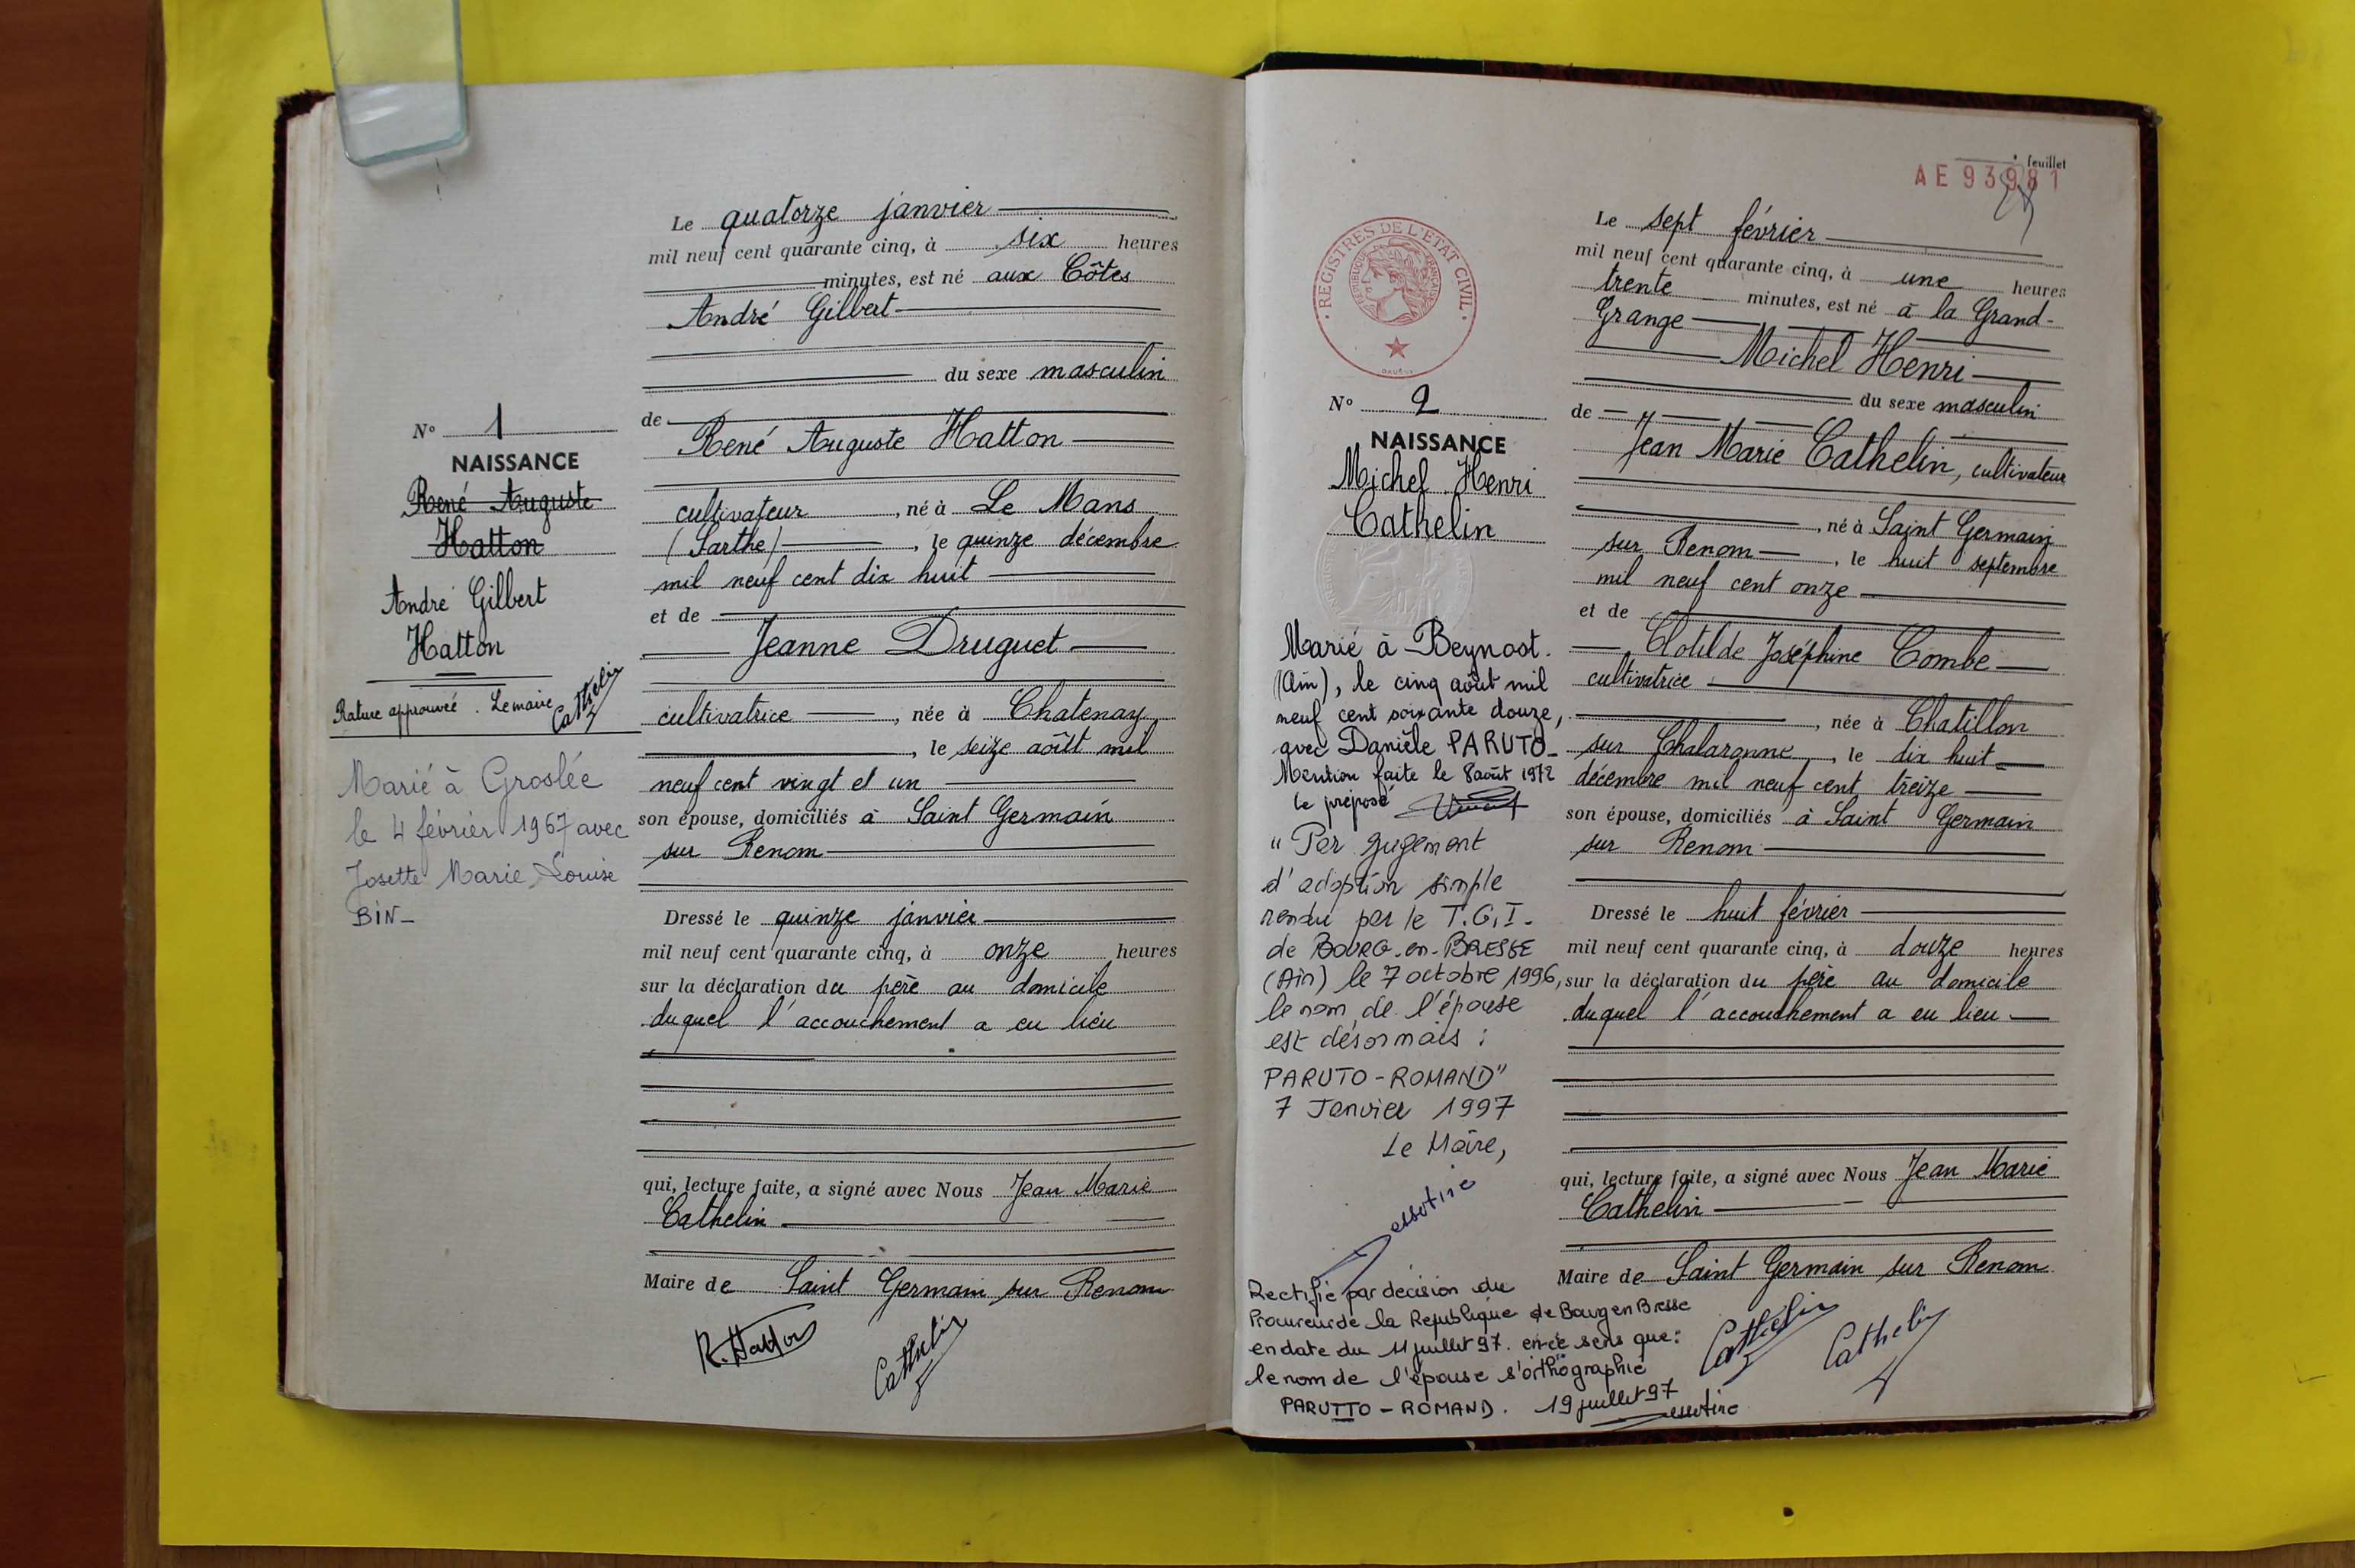 Le quatorze janvier
mil neuf cent quarante cinq, à six heures
minutes, est né aux Côtes
André Gilbert
du sexe masculin
de
René Auguste Hatton
cultivateur, né à Le Mans
(Sarthe), le quinze décembre
mil neuf cent dix huit
et de
Jeanne Druguet
cultivatrice, née à Chatenay,
, le seize août mil
neuf cent vingt et un
son épouse, domiciliés à Saint Germain
sur Renom
Dressé le quinze janvier
mil neuf cent quarante cinq, à onze heures
sur la déclaration du père au domicile
duquel l'accouchement a eu lieu
qui, lecture faite, a signé avec Nous Jean Marie
Cathelin
Maire de Saint Germain sur Renom
R. Hatton
Cathelin
N° 1
NAISSANCE
René Auguste
Hatton
André Gilbert
Hatton
Rature approuvée. Le maire
Cathelin
Marié à Groslée
le 4 février 1967 avec
Josette Marie Louise
BIN_
feuillet
AE 93981
REGISTRES DE L'ETAT CIVIL
N° 2
NAISSANCE
Michel Henri
Cathelin
Marié à Beynost.
(Ain), le cinq août mil
neuf cent soixante douze,
avec Danièle PARUTO_
Mention faite le 8 août 1972
Le préposé
"Par jugement
d'adoption simple
rendu par le T.G.I.
de BOURG-en-BRESSE
(Ain) le 7 octobre 1996,
le nom de l'épouse
est désormais :
PARUTO-ROMAND"
7 Janvier 1997
Le Maire,
Rectifié par décision du
Procureur de la République de Bourg en Bresse
en date du 11 juillet 97. en ce sens que:
le nom de l'épouse s'orthographie
PARUTTO - ROMAND. 19 juillet 97
Le sept février
mil neuf cent quarante cinq, à une heures
trente minutes, est né à la Grand-
Grange
Michel Henri
du sexe masculin
de
Jean Marie Cathelin, cultivateur
, né à Saint Germain
sur Renom, le huit septembre
mil neuf cent onze
et de
Clotilde Joséphine Combe
cultivatrice
, née à Chatillon
sur Chalaronne, le dix huit
décembre mil neuf cent treize
son épouse, domiciliés à Saint Germain
sur Renom
Dressé le huit février
mil neuf cent quarante cinq, à douze heures
sur la déclaration du père au domicile
duquel l'accouchement a eu lieu
qui, lecture faite, a signé avec Nous Jean Marie
Cathelin
Maire de Saint Germain sur Renom
Cathelin
Cathelin